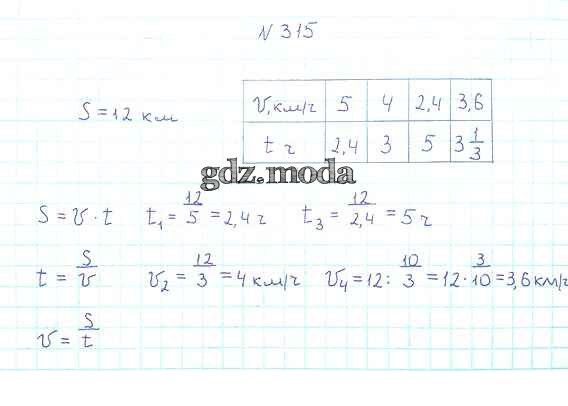 N 315
S = 12 км
v, км/ч 5 4 2,4 3,6
t ч 2,4 3 5 3 1/3
gdz.moda
S = v · t t₁ = 12/5 = 2,4 ч t₃ = 12/2,4 = 5 ч
t = S/v v₂ = 12/3 = 4 км/ч v₄ = 12 : 10/3 = 12 · 3/10 = 3,6 км/ч
v = S/t